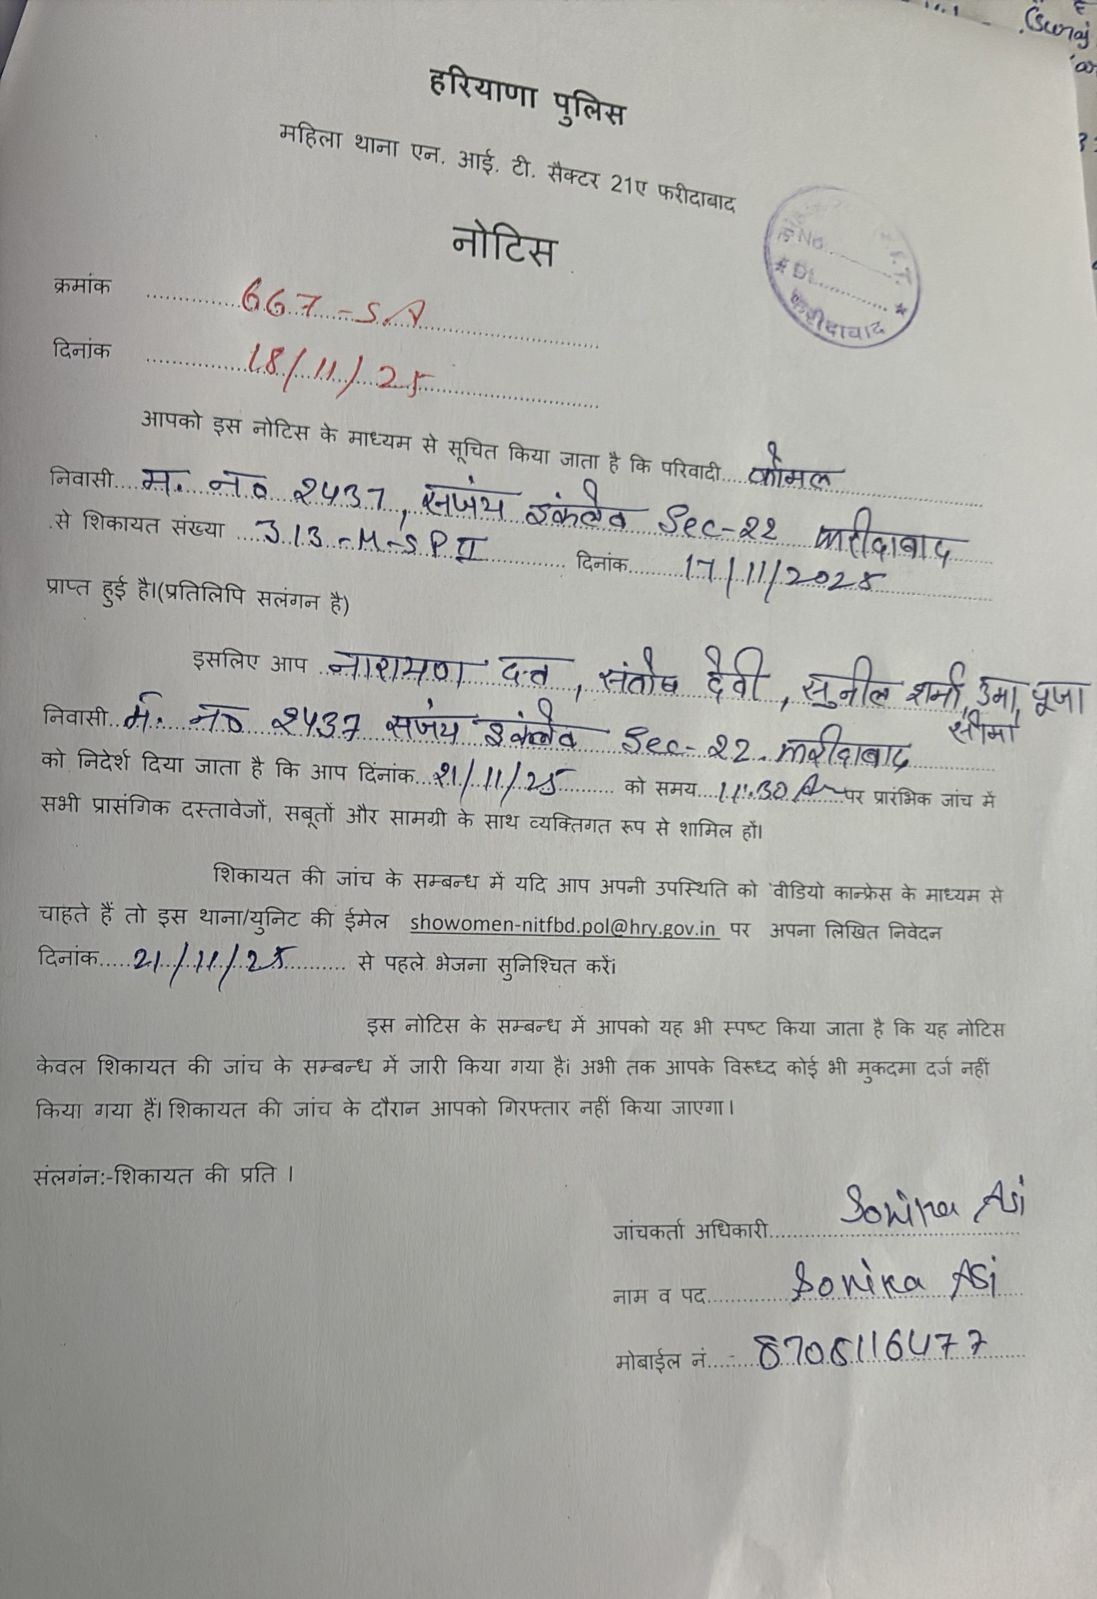 (Suraj
हरियाणा पुलिस
महिला थाना एन. आई. टी. सैक्टर 21ए फरीदाबाद
नोटिस
No.
Dt.
फरीदाबाद
क्रमांक 667-S.A
दिनांक 18/11/25
आपको इस नोटिस के माध्यम से सूचित किया जाता है कि परिवादी कोमल
निवासी म. न० 2437, सजंय इंकलेव Sec-22 फरीदाबाद
से शिकायत संख्या 313-M-SP II दिनांक 17/11/2025
प्राप्त हुई है।(प्रतिलिपि सलंगन है)
इसलिए आप नारायण दत्त, संतोष देवी, सुनील शर्मा, उमा, पूजा
सीमा
निवासी म. न० 2437 सजंय इंकलेव Sec-22 फरीदाबाद
को निदेर्श दिया जाता है कि आप दिंनाक 21/11/25 को समय 11:30 Am पर प्रारंभिक जांच में
सभी प्रासंगिक दस्तावेजों, सबूतों और सामग्री के साथ व्यक्तिगत रूप से शामिल हों।
शिकायत की जांच के सम्बन्ध में यदि आप अपनी उपस्थिति को वीडियो कान्फ्रेस के माध्यम से
चाहते हैं तो इस थाना/युनिट की ईमेल showomen-nitfbd.pol@hry.gov.in पर अपना लिखित निवेदन
दिनांक 21/11/25 से पहले भेजना सुनिश्चित करें।
इस नोटिस के सम्बन्ध में आपको यह भी स्पष्ट किया जाता है कि यह नोटिस
केवल शिकायत की जांच के सम्बन्ध में जारी किया गया है। अभी तक आपके विरूध्द कोई भी मुकदमा दर्ज नहीं
किया गया हैं। शिकायत की जांच के दौरान आपको गिरफ्तार नहीं किया जाएगा।
संलगंन:-शिकायत की प्रति ।
जांचकर्ता अधिकारी Sonika ASI
नाम व पद Sonika ASI
मोबाईल नं.